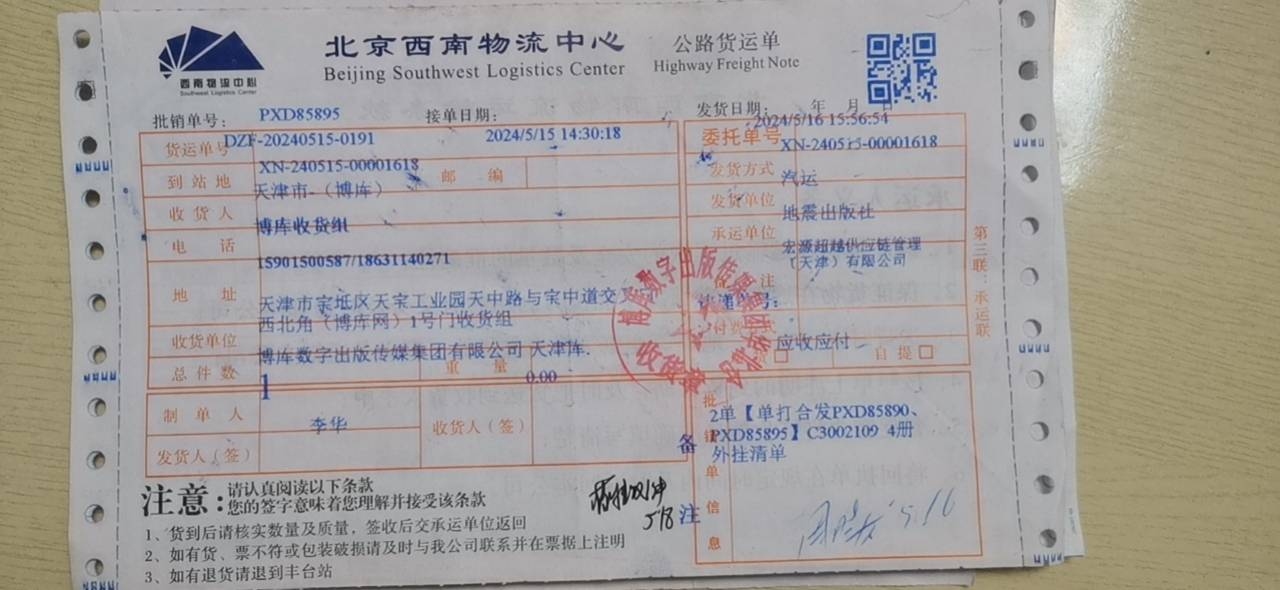 西南物流中心
Southwest Logistics Center
北京西南物流中心
Beijing Southwest Logistics Center
公路货运单
Highway Freight Note
批销单号： PXD85895 接单日期： 发货日期： 年 月 日
2024/5/16 15:56:54
货运单号 DZF-20240515-0191 2024/5/15 14:30:18 委托单号
XN-240515-00001618 XN-240515-00001618
到站地 天津市-（博库） 邮编 发货方式 汽运
收货人 博库收货组 发货单位 地震出版社
电话 15901500587/18631140271 承运单位 宏源超越供应链管理
（天津）有限公司
地址 天津市宝坻区天宝工业园天中路与宝中道交
西北角（博库网）1号门收货组
收货单位 博库数字出版传媒集团有限公司 天津库.
应收应付
自提
总件数 1 重量 0.00
制单人 李华 收货人（签）
发货人（签）
批销单信息
备注
2单【单打合发PXD85890、
PXD85895】C3002109 4册
外挂清单
第三联：承运联
博库数字出版传媒集团
收货章
注意：
请认真阅读以下条款
您的签字意味着您理解并接受该条款
1、货到后请核实数量及质量，签收后交承运单位返回
2、如有货、票不符或包装破损请及时与我公司联系并在票据上注明
3、如有退货请退到丰台站
5.18
5.16